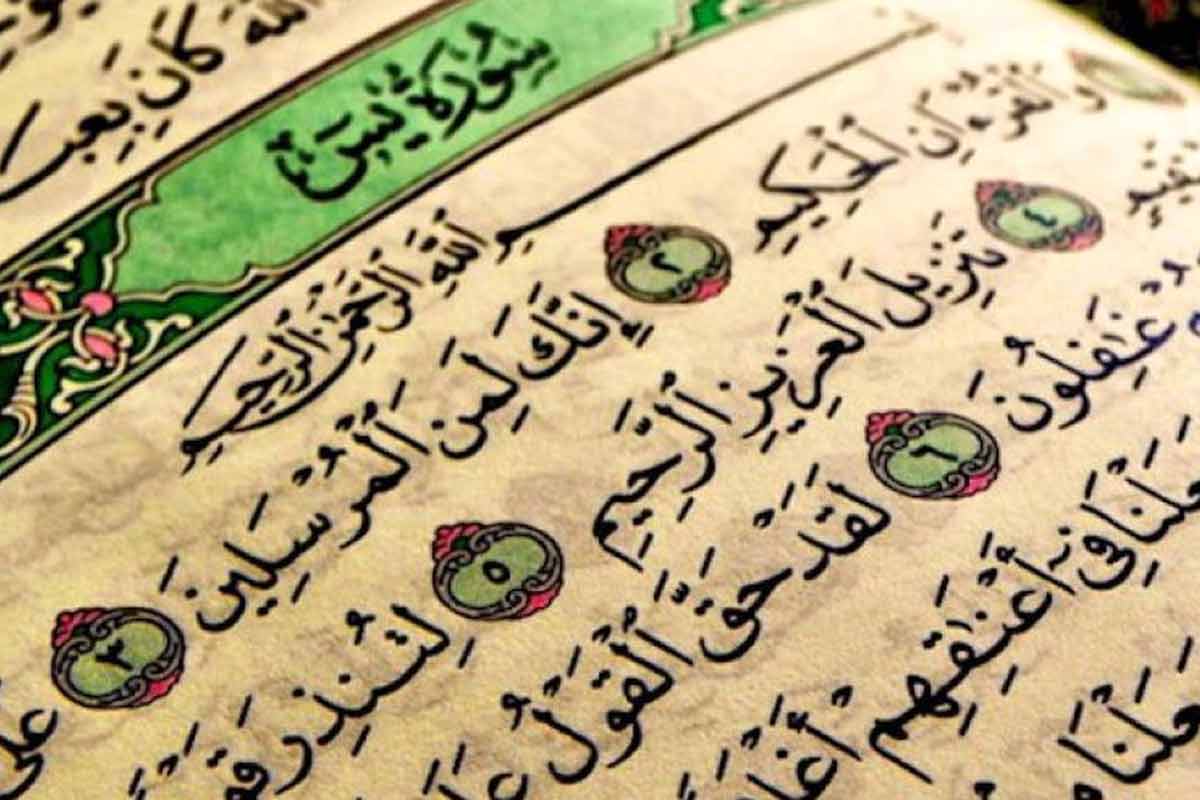 ٱللَّهَ كَانَ بِعِبَـ
سُورَةُ يسٓ
بِسْمِ ٱللَّهِ ٱلرَّحْمَٰنِ ٱلرَّحِيمِ
وَٱلْقُرْءَانِ ٱلْحَكِيمِ ٢ إِنَّكَ لَمِنَ ٱلْمُرْسَلِينَ ٣ عَلَىٰ
ـتَقِيمٍ ٤ تَنزِيلَ ٱلْعَزِيزِ ٱلرَّحِيمِ ٥ لِتُنذِرَ قَوْ
غَٰفِلُونَ ٦ لَقَدْ حَقَّ ٱلْقَوْلُ عَلَـ
جَعَلْنَا فِىٓ أَعْنَٰقِهِمْ أَغْلَـ
جَعَلْنَا مِـ